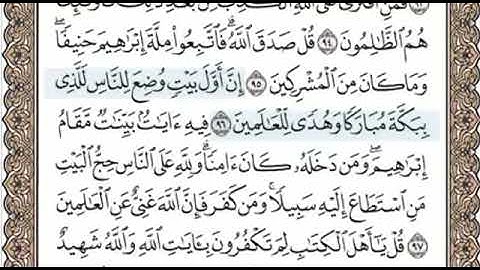 هُمُ ٱلظَّـٰلِمُونَ ٩٤ قُلۡ صَدَقَ ٱللَّهُۗ فَٱتَّبِعُواْ مِلَّةَ إِبۡرَٰهِيمَ حَنِيفًاۖ
وَمَا كَانَ مِنَ ٱلۡمُشۡرِكِينَ ٩٥ إِنَّ أَوَّلَ بَيۡتٖ وُضِعَ لِلنَّاسِ لَلَّذِي
بِبَكَّةَ مُبَارَكٗا وَهُدٗى لِّلۡعَٰلَمِينَ ٩٦ فِيهِ ءَايَٰتُۢ بَيِّنَٰتٞ مَّقَامُ
إِبۡرَٰهِيمَۖ وَمَن دَخَلَهُۥ كَانَ ءَامِنٗاۗ وَلِلَّهِ عَلَى ٱلنَّاسِ حِجُّ ٱلۡبَيۡتِ
مَنِ ٱسۡتَطَاعَ إِلَيۡهِ سَبِيلٗاۚ وَمَن كَفَرَ فَإِنَّ ٱللَّهَ غَنِيٌّ عَنِ ٱلۡعَٰلَمِينَ
٩٧ قُلۡ يَٰٓأَهۡلَ ٱلۡكِتَٰبِ لِمَ تَكۡفُرُونَ بِـَٔايَٰتِ ٱللَّهِ وَٱللَّهُ شَهِيدٌ